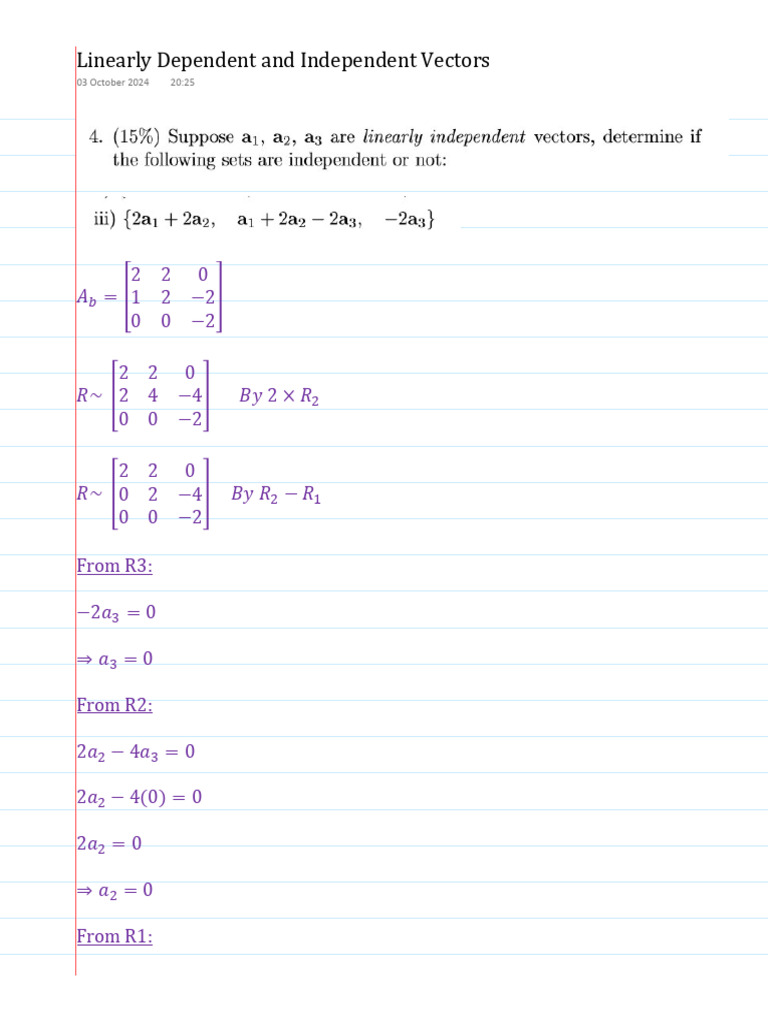 Linearly Dependent and Independent Vectors
03 October 2024 20:25
4. (15%) Suppose a₁, a₂, a₃ are linearly independent vectors, determine if
the following sets are independent or not:
iii) {2a₁ + 2a₂, a₁ + 2a₂ − 2a₃, −2a₃}
2 2 0
A_b = 1 2 −2
0 0 −2
2 2 0
R~ 2 4 −4 By 2 × R₂
0 0 −2
2 2 0
R~ 0 2 −4 By R₂ − R₁
0 0 −2
From R3:
−2a₃ = 0
⇒ a₃ = 0
From R2:
2a₂ − 4a₃ = 0
2a₂ − 4(0) = 0
2a₂ = 0
⇒ a₂ = 0
From R1: